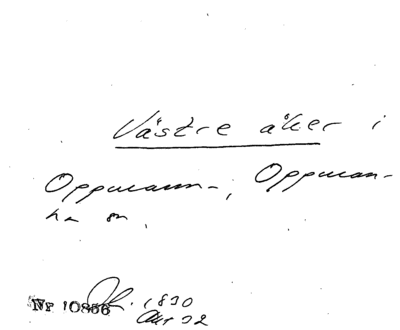 Västre åker i
Oppmann-, Oppman-
ha sn.
Nr 10866
1830
Akt 92